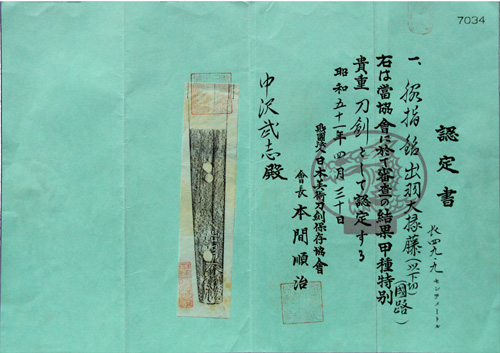 7034
認定書
一、脇指 銘 出羽大掾藤(以下切)(國路)
長四九、九センチメートル
右は當協會に於て審査の結果甲種特別
貴重刀剣として認定する
昭和五十一年四月三十日
財團法人日本美術刀剣保存協會
會長 本間順治
中沢武志殿